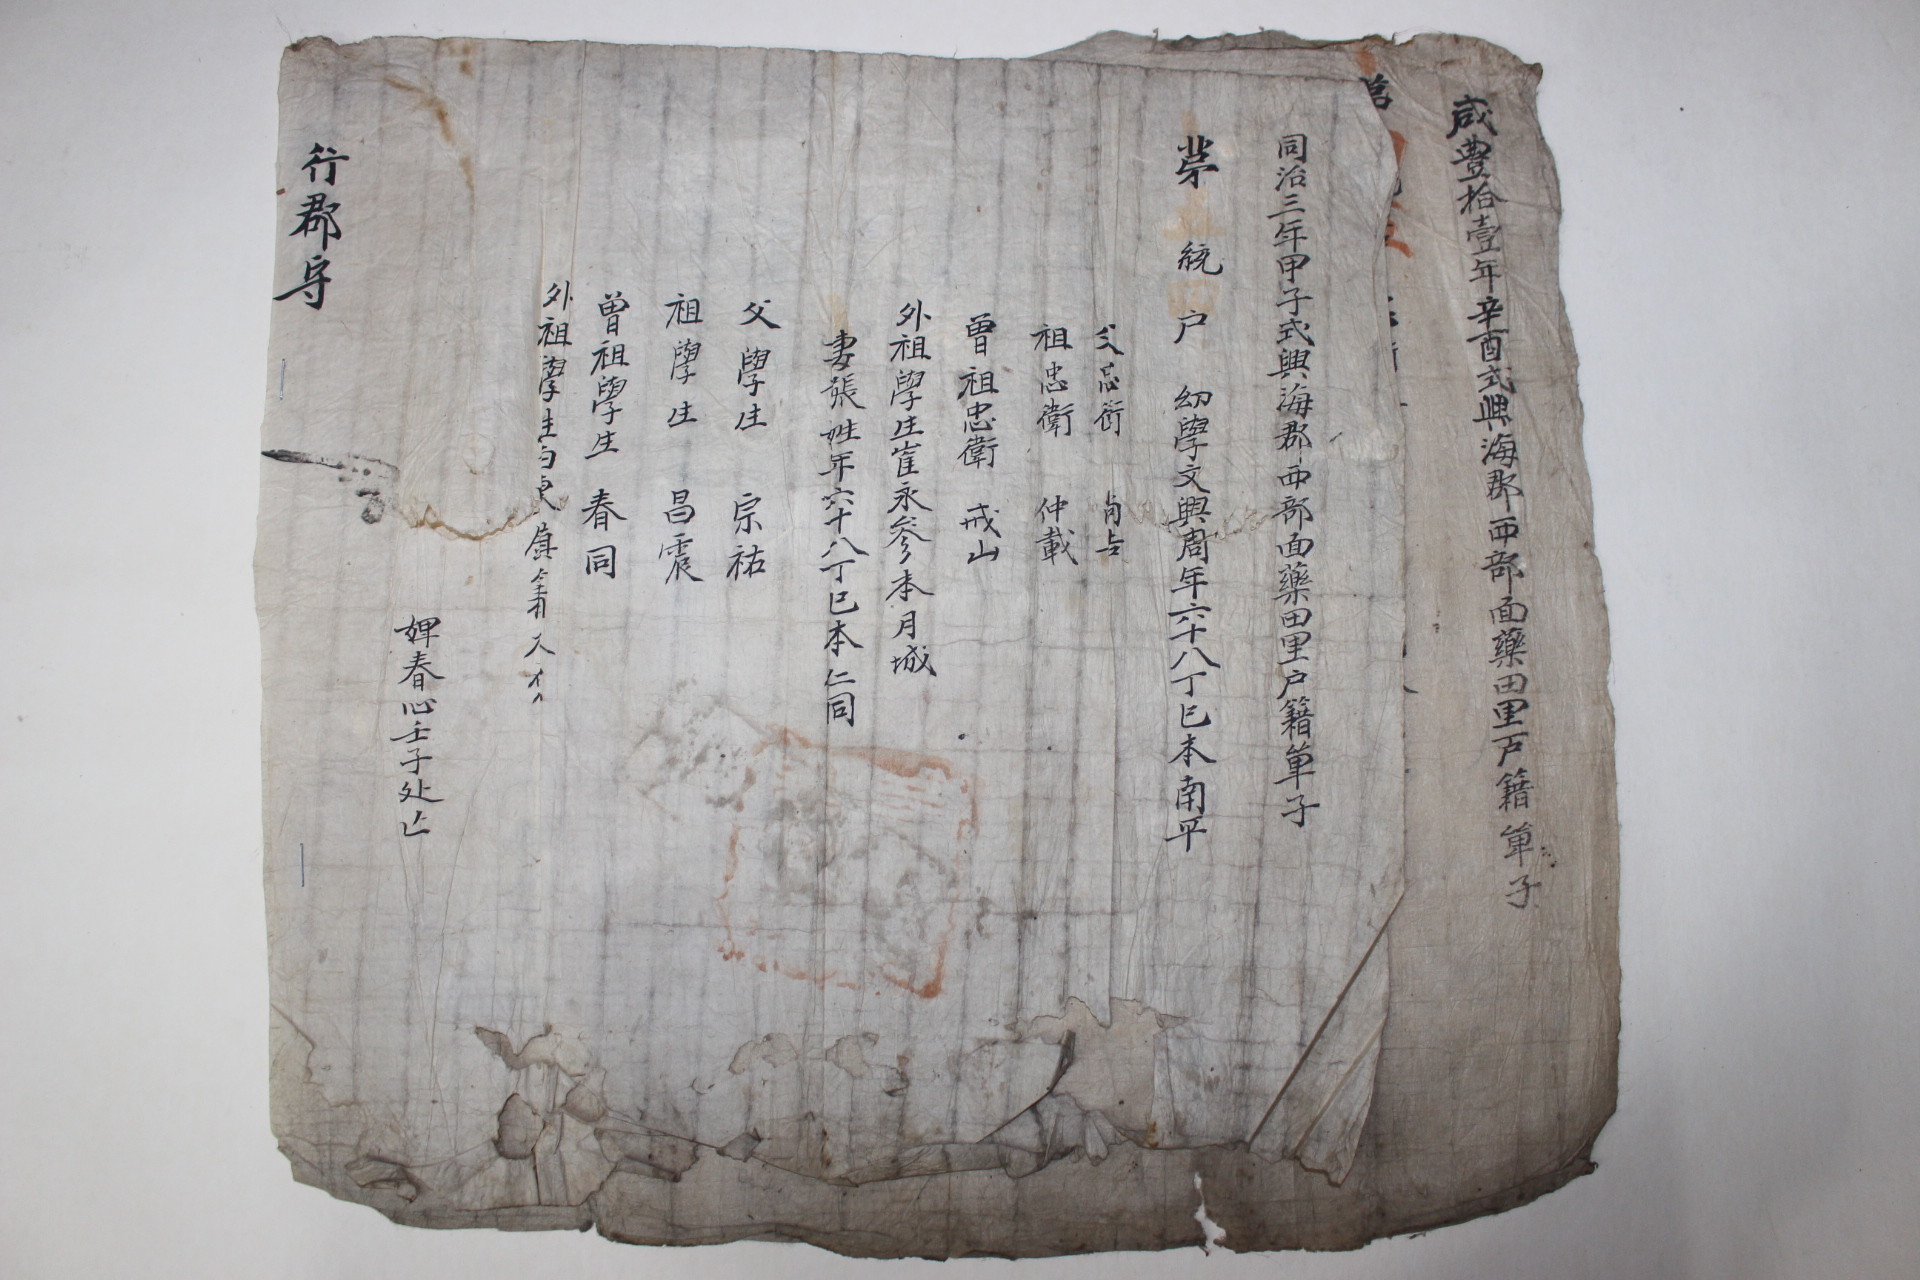 咸豊拾壹年辛酉式興海郡西部面藥田里戸籍單子
同治三年甲子式興海郡西部面藥田里户籍單子
苐 統 户 幼學文興周年六十八丁巳本南平
父忠衛
祖忠衛 仲載
曽祖忠衛 戒山
外祖學生崔永參本月城
妻張姓年六十八丁巳本仁同
父學生 宗祐
祖學生 昌震
曽祖學生 春同
外祖學生
婢春心壬子处亡
行郡守